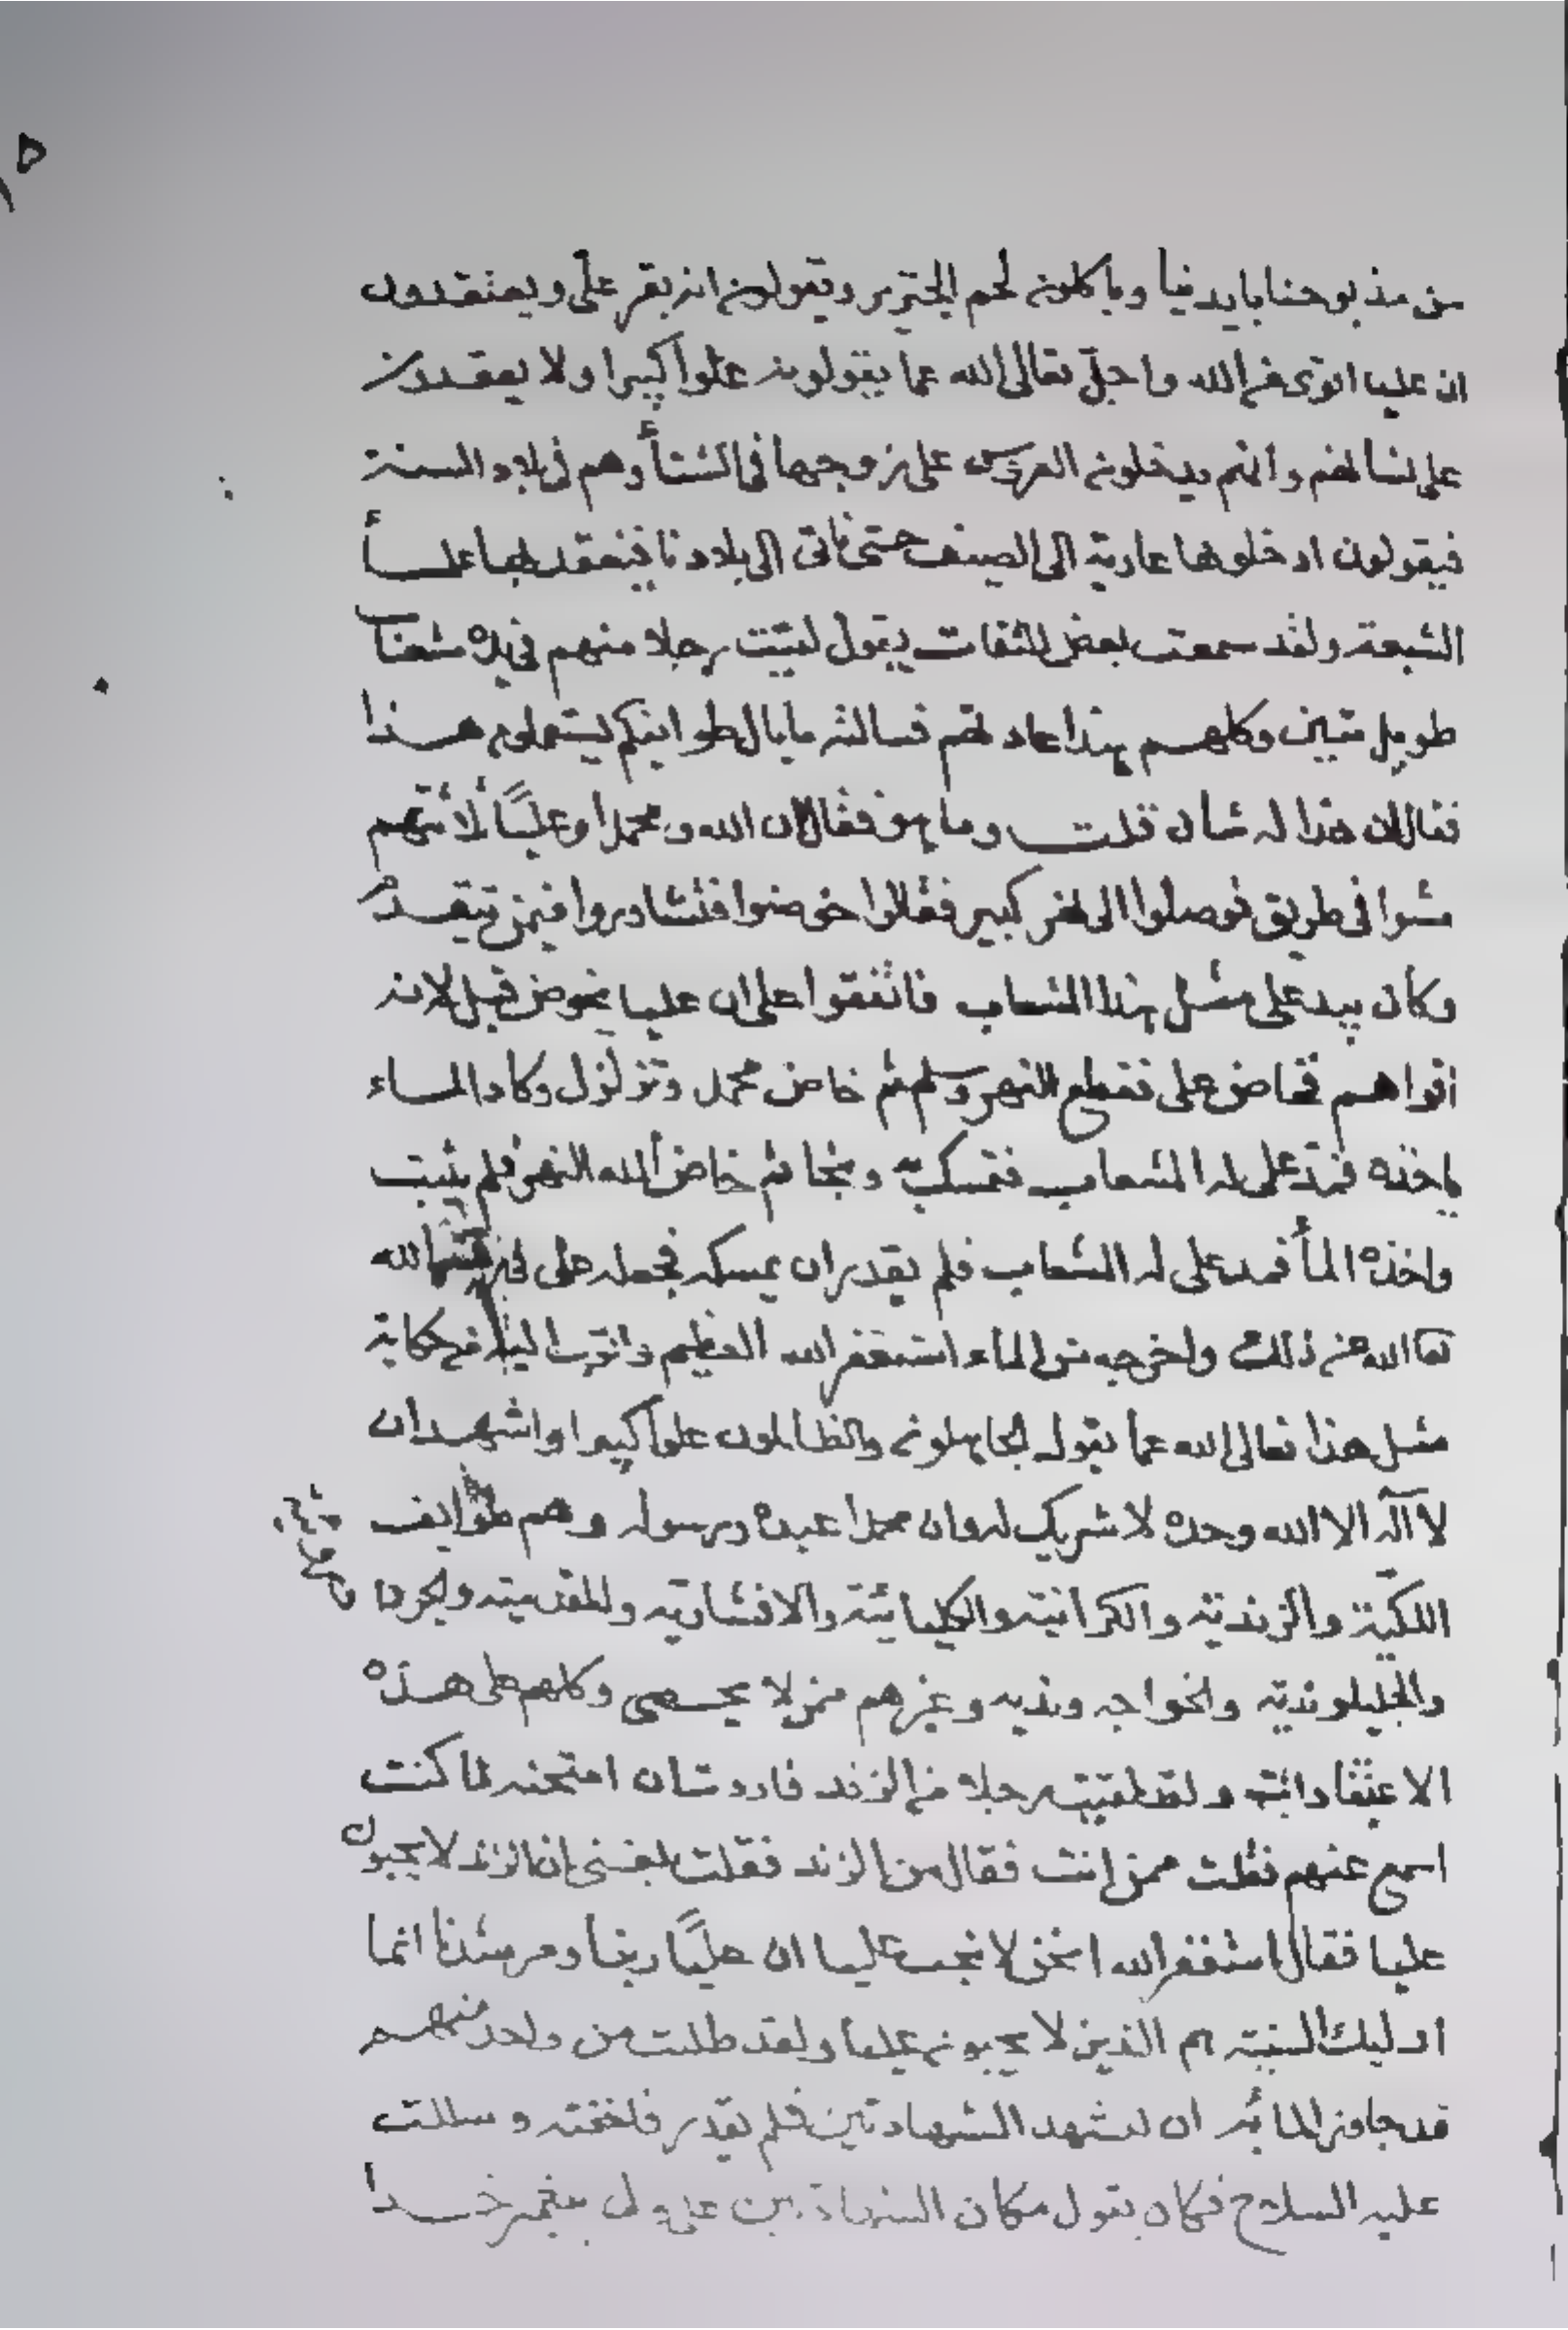 ١٥
من مذبوحنا بايدينا وياكلون لحم الخنزير ويقولون انه بقر علي ويعتقدون
ان عليا اقوى من الله واجل تعالى الله عما يقولون علوا كبيرا ولا يعقدون
على نسائهم وانهم يدخلون العروس على زوجها في الشتأ وهم في بلاد السنة
فيقولون ادخلوها عارية الى الصيف حتى نأتي الى بلادنا فنعقد لها علماء
الشيعة ولقد سمعت بعض الثقات يقول لقيت رجلا منهم في يده مشعاب
طويل متين وكلهم هذا عادتهم فسالته ما بال طوايفكم يستعملون هذا
فقال لان هذا له شأن قلت وما هو فقال لان الله ومحمدا وعليًا ثلاثتهم
مشوا في طريق فوصلوا الى نهر كبير فقالوا خوضوا فتشاوروا فيمن يتقدم
وكان بيد على مثل هذا المشعاب فاتفقوا على ان عليا يخوض قبل لانه
اقواهم فخاض على فقطع النهر وسلم ثم خاض محمد وتزلزل وكاد الماء
ياخذه فمد على له المشعاب فتمسك به ونجا ثم خاض الله النهر فلم يثبت
واخذه المأ فمد على له المشعاب فلم يقدر ان يمسكه فجعله على في الله
تعا الله عن ذلك واخرجه من الماء استغفر الله العظيم واتوب اليه من حكاية
مثل هذا تعالى الله عما يقول الجاهلون والظالمون علوا كبيرا واشهد ان
لا اله الا الله وحده لا شريك له وان محمدا عبده ورسوله وهم طوايف
اللكية والزندية والكرانية والكليائية والافشارية والمقدمية
والجليلوندية والخواجه ونديه وغيرهم ممن لا يحصى وكلهم على هذه
الاعتقادات ولقد لقيت رجلا من الزند فاردت ان امتحنه لما كنت
اسمع عنهم فقلت ممن انت فقال من الزند فقلت بلغني ان الزند لا يحبون
عليا فقال استغفر الله انحن لا نحب عليا ان عليًا ربنا ومرشدنا انما
اوليك السنية هم الذين لا يحبون عليا ولقد طلبت من واحد منهم
قد جاوز المائه ان يشهد الشهادتين فلم يقدر فاخفته وسللت
عليه السلاح فكان يقول مكان الشهادتين على ول بيغمبر خدا